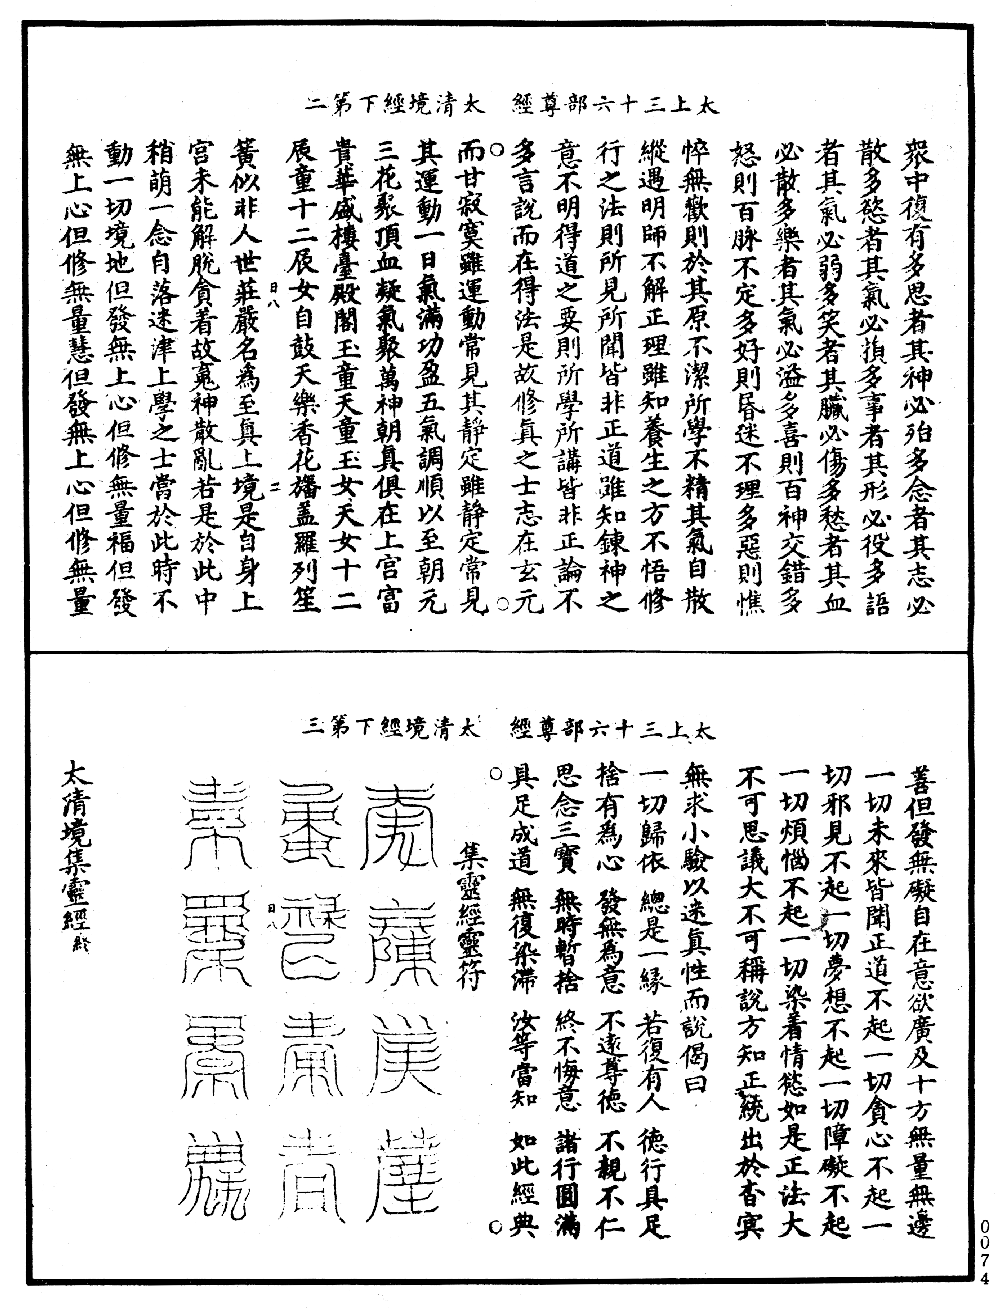 太上三十六部尊經　太清境經下第二
眾中復有多思者其神必殆多念者其志必
散多慾者其氣必損多事者其形必役多語
者其氣必弱多笑者其臟必傷多愁者其血
必散多樂者其氣必溢多喜則百神交錯多
怒則百脉不定多好則昏迷不理多惡則憔
悴無歡則於其原不潔所學不精其氣自散
縱遇明師不解正理雖知養生之方不悟修
行之法則所見所聞皆非正道雖知鍊神之
意不明得道之要則所學所講皆非正論不
多言說而在得法是故修真之士志在玄元
而甘寂寞雖運動常見其靜定雖靜定常見
其運動一日氣滿功盈五氣調順以至朝元
三花聚頂血凝氣聚萬神朝真俱在上宮富
貴華盛樓臺殿閣玉童天童玉女天女十二
辰童十二辰女自鼓天樂香花旛蓋羅列笙
日八　二
簧似非人世莊嚴名為至真上境是自身上
宮未能解脫貪着故寃神散亂若是於此中
稍萌一念自落迷津上學之士當於此時不
動一切境地但發無上心但修無量福但發
無上心但修無量慧但發無上心但修無量
太上三十六部尊經　太清境經下第三
善但發無礙自在意欲廣及十方無量無邊
一切未來皆聞正道不起一切貪心不起一
切邪見不起一切夢想不起一切障礙不起
一切煩惱不起一切染着情慾如是正法大
不可思議大不可稱說方知正統出於杳冥
無求小驗以迷真性而說偈曰
一切歸依　總是一緣　若復有人　德行具足
捨有為心　發無為意　不遠尊德　不親不仁
思念三寶　無時暫捨　終不悔意　諸行圓滿
具足成道　無復染滯　汝等當知　如此經典
集靈經靈符
日八
太清境集靈經終
0074